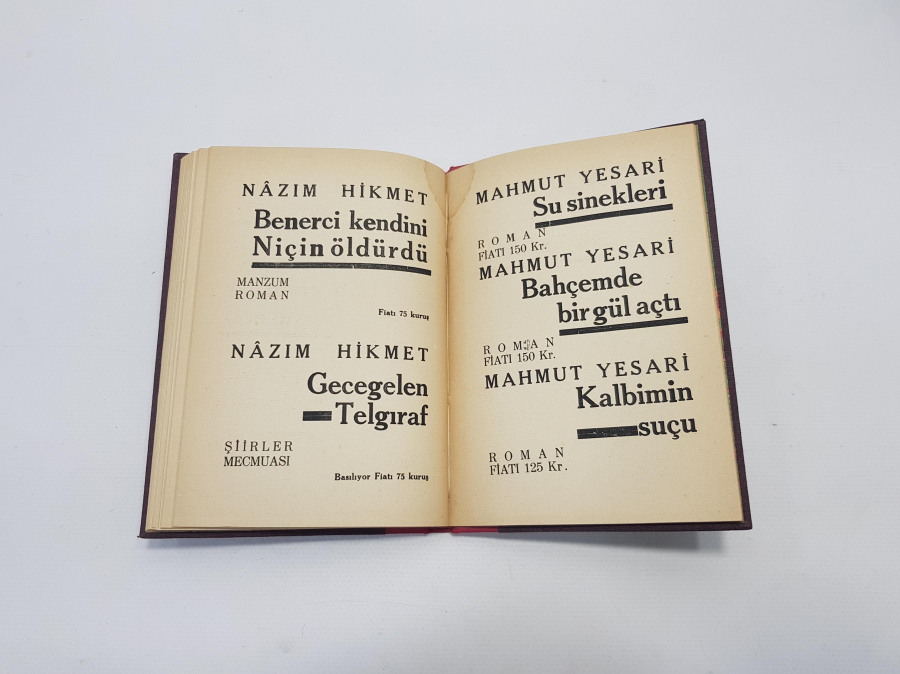 NÂZIM HİKMET
Benerci kendini
Niçin öldürdü
MANZUM
ROMAN
Fiatı 75 kuruş
NÂZIM HİKMET
Gecegelen
Telgıraf
ŞİİRLER
MECMUASI
Basılıyor Fiatı 75 kuruş
MAHMUT YESARİ
Su sinekleri
ROMAN
FİATI 150 Kr.
MAHMUT YESARİ
Bahçemde
bir gül açtı
ROMAN
FİATI 150 Kr.
MAHMUT YESARİ
Kalbimin
suçu
ROMAN
FİATI 125 Kr.